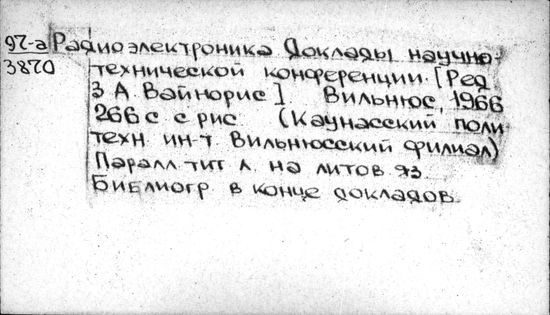 97-а Радиоэлектроника Доклады научно-
3870 технической конференции. [Ред
З А. Вайнорис] Вильнюс, 1966
266 с с рис. (Каунасский поли
техн. ин-т. Вильнюсский филиал)
Паралл. тит л. на литов. яз.
Библиогр. в конце докладов.